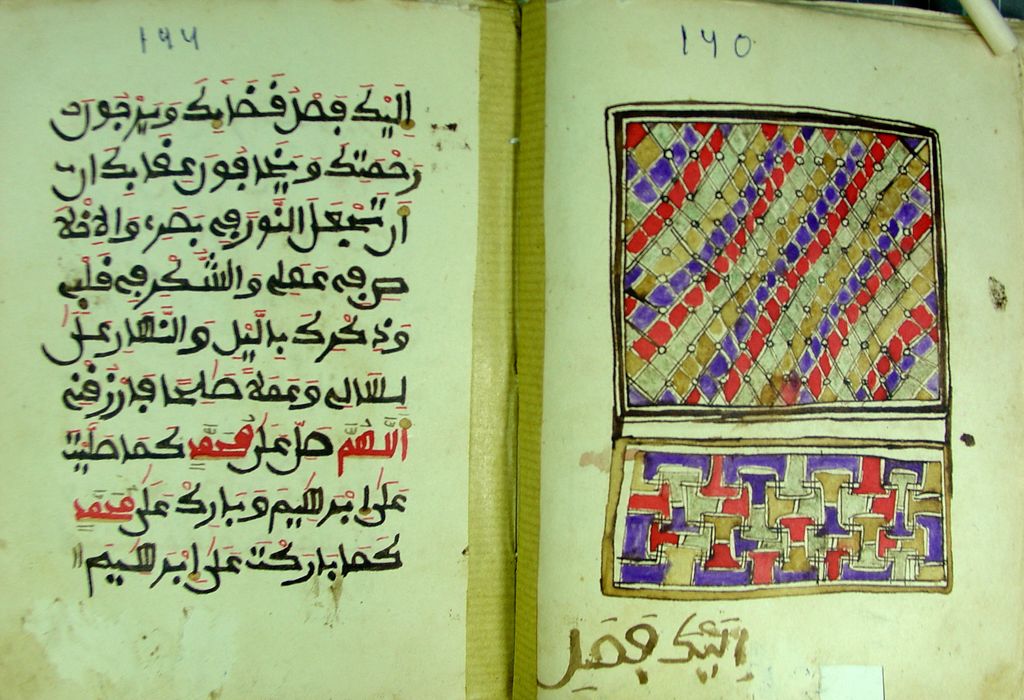 ١٤٥
إليك فصل
١٤٤
إليك فصل قضايك ويرجون
رحمتك ويخافون عقابك ان
أن تجعل النور في بصري والإخلا
ص في عملي والشكر في قلبي
وذكرك باليل والنهار على
لساني وعملا صالحا فارزقني
اللهم صل على محمد كما صليت
على إبرهيم وبارك على محمد
كما باركت على إبرهيم